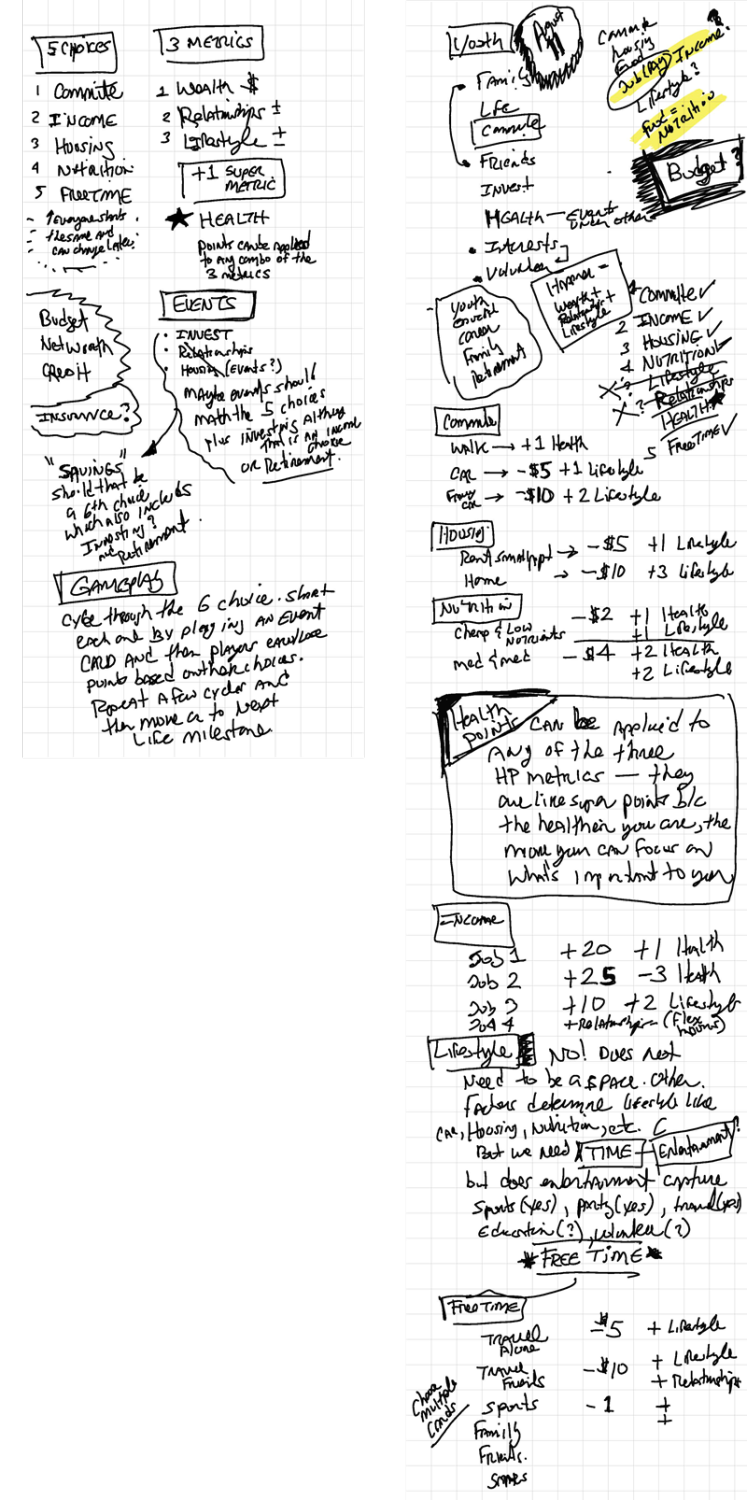 5 CHOICES
1 Commute
2 INCOME
3 Housing
4 Nutrition
5 FREETIME
- Everyone starts
- the same and
- can change later.
3 METRICS
1 Wealth $
2 Relationships ±
3 Lifestyle ±
+1 SUPER
METRIC
★ HEALTH
POINTS can be applied
to any combo of the
3 metrics
Budget
Networth
Credit
INSURANCE?
EVENTS
• INVEST
• Relationships
• Housing (Events?)
Maybe events should
match the 5 choices
plus investing Although
that is an income
choice
OR Retirement.
"SAVINGS"
should that be
a 6th choice
which also includes
Investing?
and Retirement.
GAMEPLAY
cycle through the 6 choice. Start
each one by playing AN EVENT
CARD AND then players earn/lose
points based on their choices.
Repeat A few cycles AND
then move on to next
Life milestone
Youth
August
Commute
housing
Food
Job (Pay) Income?
Lifestyle?
Food =
Nutrition
Budget?
• FAMILY
Life
Commute
• Friends
Invest
HEALTH — Events
under other
• Interests
• Volunteer
youth
career
Family
Retirement
Wealth +
Relationships +
Lifestyle
1 Commute ✓
2 INCOME ✓
3 HOUSING ✓
4 NUTRITION ✓
X ? Lifestyle
X ? Relationships
HEALTH ★
5 FREETIME ✓
Commute
Walk → +1 Health
CAR → -$5 +1 Lifestyle
Fancy car → -$10 +2 Lifestyle
Housing
Rent small appt → -$5 +1 Lifestyle
Home → -$10 +3 Lifestyle
Nutrition
Cheap & Low Nutrients -$2 +1 Health
+1 Lifestyle
med & med -$4 +2 Health
+2 Lifestyle
Health
Points
CAN be Applied to
Any of the three
HP metrics — they
are like super points b/c
the healthier you are, the
more you can focus on
what's important to you
Income
Job 1 +20 +1 Health
Job 2 +25 -3 Health
Job 3 +10 +2 Lifestyle
Job 4 + Relationships (flex hours)
Lifestyle NO! Does not
Need to be a SPACE. Other
factors determine lifestyle like
car, Housing, Nutrition, etc.
But we need TIME Entertainment?
but does entertainment capture
Sports (yes), party (yes), travel (yes)
Education (?), volunteer (?)
* FREE TIME *
FREETIME
TRAVEL Alone -$5 + Lifestyle
Travel Friends -$10 + Lifestyle
+ Relationships
Choose
multiple
cards
Sports -1 +
+
Family
Friends.